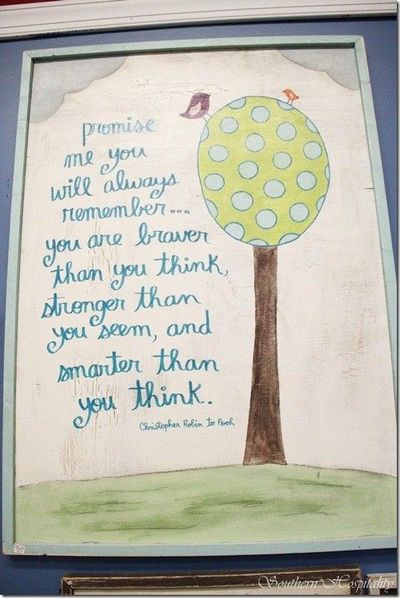 promise
me you
will always
remember...
you are braver
than you think,
stronger than
you seem, and
smarter than
you think.
Christopher Robin to Pooh
Southern Hospitality